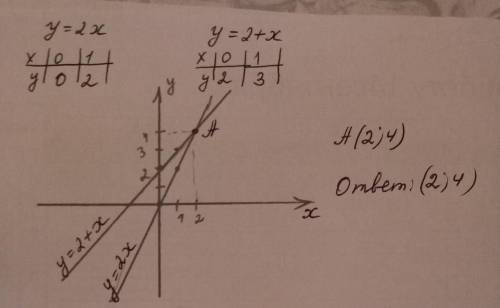 y=2x
x | 0 | 1 |
y | 0 | 2 |
y=2+x
x | 0 | 1 |
y | 2 | 3 |
y
4
3
2
A
1 2
x
y=2+x
y=2x
A(2;4)
Ответ: (2;4)